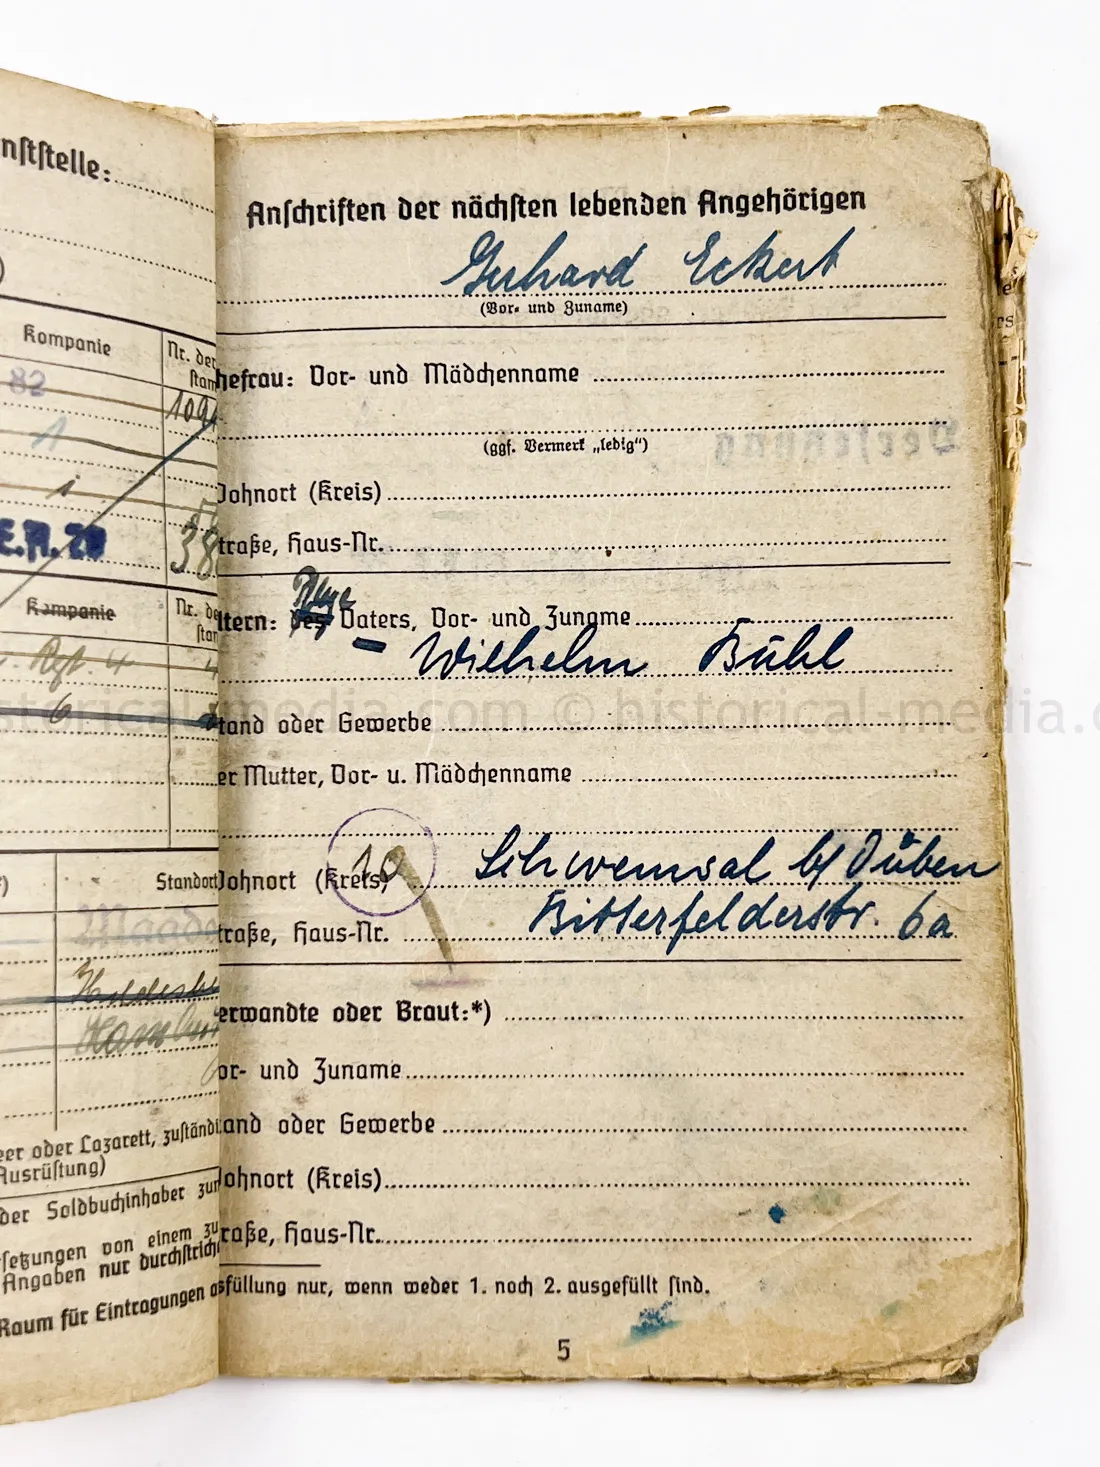 nststelle:
)
Kompanie
Nr. der
stam
82
109
1
1
E.A. 20
38
Kompanie
Nr. de
stam
. Rgt. 4
4
6
*)
Standort
Magde
Hildesh
Hambur
eer oder Lazarett, zuständi
Ausrüstung)
der Soldbuchinhaber zur
rsetzungen von einem zu
Angaben nur durchstrich
Raum für Eintragungen a
Anschriften der nächsten lebenden Angehörigen
Gerhard Eckert
(Vor- und Zuname)
hefrau: Vor- und Mädchenname
(ggf. Vermerk „ledig“)
Wohnort (Kreis)
traße, Haus-Nr.
Pflege
ltern: des Vaters, Vor- und Zuname
Wilhelm Bühl
tand oder Gewerbe
er Mutter, Vor- u. Mädchenname
10
Wohnort (Kreis)
Schwemsal b/ Düben
traße, Haus-Nr.
Bitterfelderstr. 6a
erwandte oder Braut:*)
or- und Zuname
and oder Gewerbe
Wohnort (Kreis)
raße, Haus-Nr.
sfüllung nur, wenn weder 1. noch 2. ausgefüllt sind.
5
storical-media.com © historical-media.c